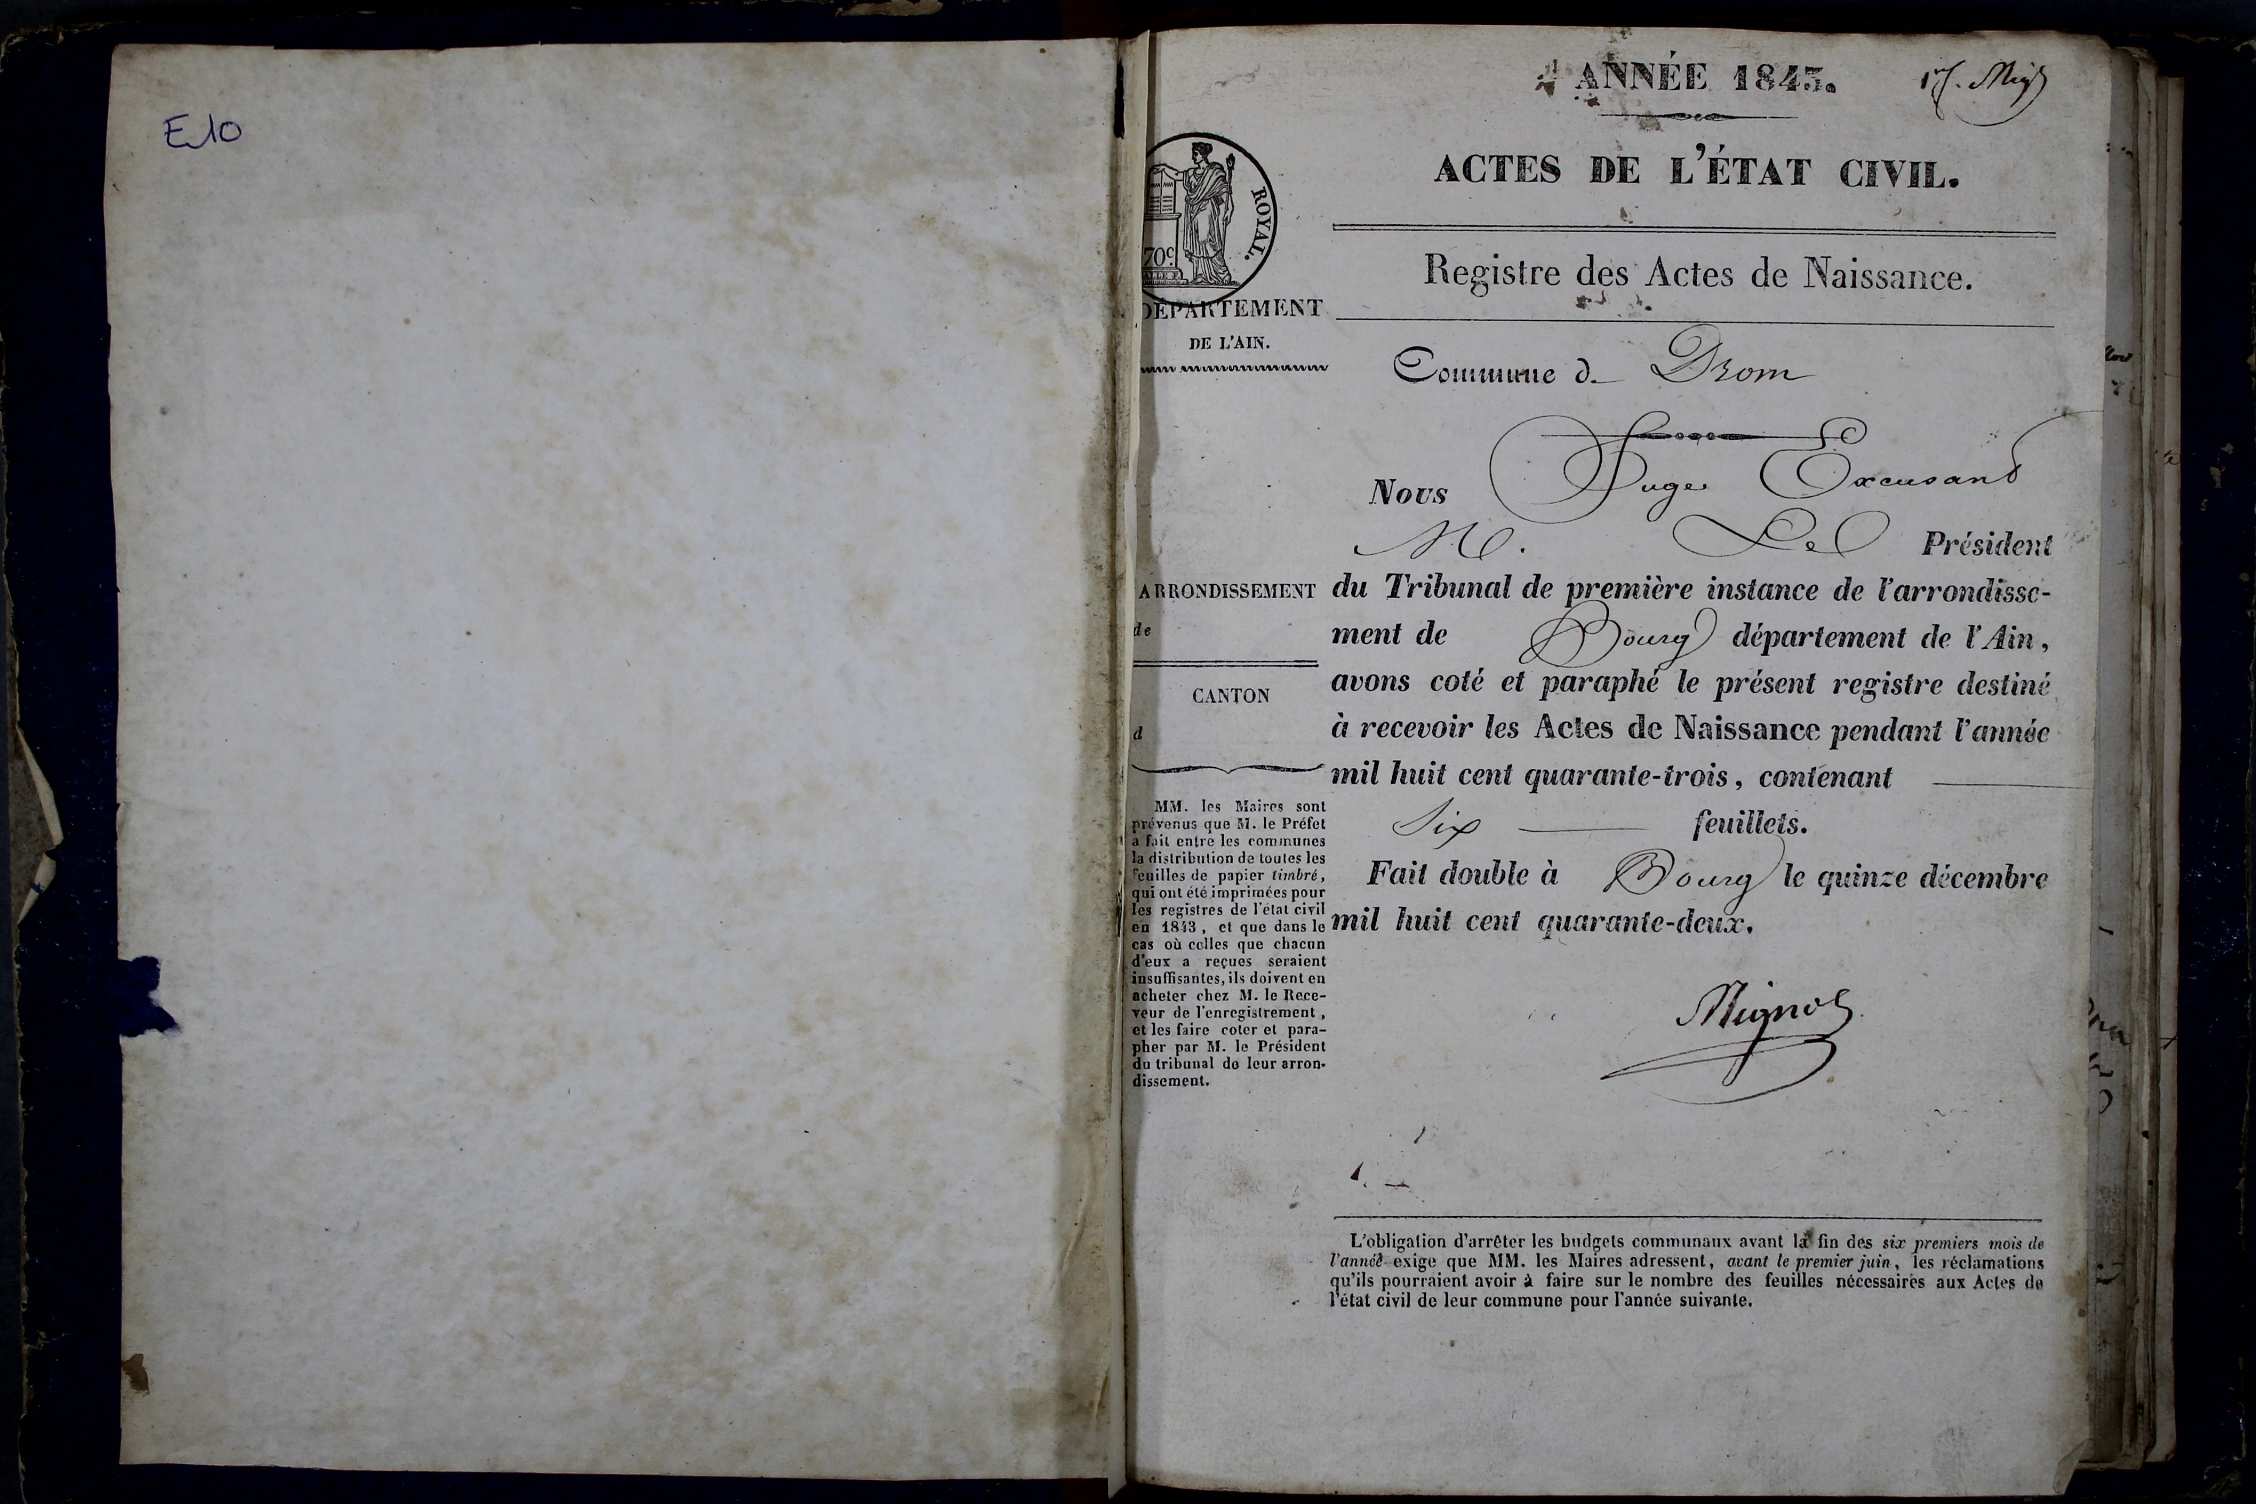 E10
ANNÉE 1843.
ACTES DE L'ÉTAT CIVIL.
Registre des Actes de Naissance.
ROYAL.
70c
DÉPARTEMENT
DE L'AIN.
Commune d Drom
Nous Juge Excusant
M. Le Président
du Tribunal de première instance de l'arrondisse-
ment de Bourg département de l'Ain,
avons coté et paraphé le présent registre destiné
à recevoir les Actes de Naissance pendant l'année
mil huit cent quarante-trois, contenant
Six feuillets.
Fait double à Bourg le quinze décembre
mil huit cent quarante-deux.
Mignot
ARRONDISSEMENT
de
CANTON
d
MM. les Maires sont
prévenus que M. le Préfet
a fait entre les communes
la distribution de toutes les
feuilles de papier timbré,
qui ont été imprimées pour
les registres de l'état civil
en 1843, et que dans le
cas où celles que chacun
d'eux a reçues seraient
insuffisantes, ils doivent en
acheter chez M. le Rece-
veur de l'enregistrement,
et les faire coter et para-
pher par M. le Président
du tribunal de leur arron-
dissement.
L'obligation d'arrêter les budgets communaux avant la fin des six premiers mois de
l'année exige que MM. les Maires adressent, avant le premier juin, les réclamations
qu'ils pourraient avoir à faire sur le nombre des feuilles nécessaires aux Actes de
l'état civil de leur commune pour l'année suivante.